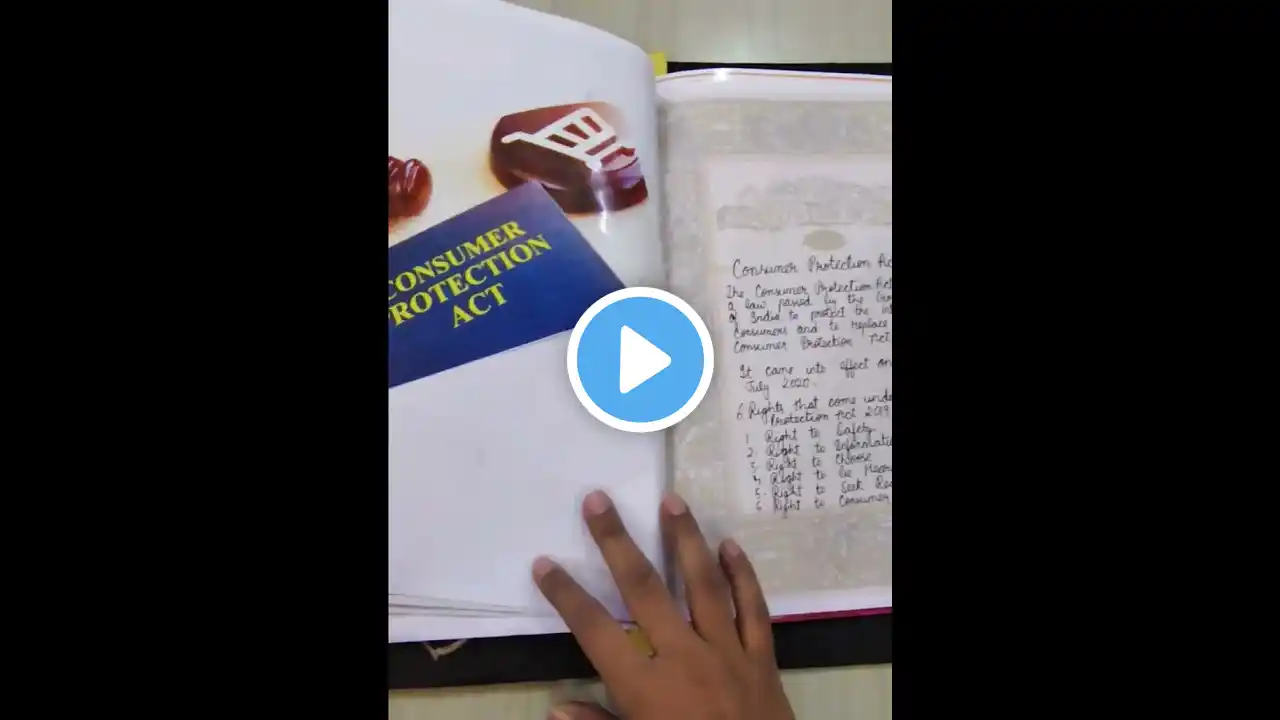 CONSUMER
PROTECTION
ACT
Consumer Protection Ac
The Consumer Protection Act
a law passed by the Gov
of India to protect the int
Consumers and to replace
Consumer Protection Act
It came into effect on
July 2020.
6 Rights that come unde
Protection Act 2019
1. Right to Safety
2. Right to Informatio
3. Right to Choose
4. Right to be Hear
5. Right to Seek Re
6. Right to Consumer